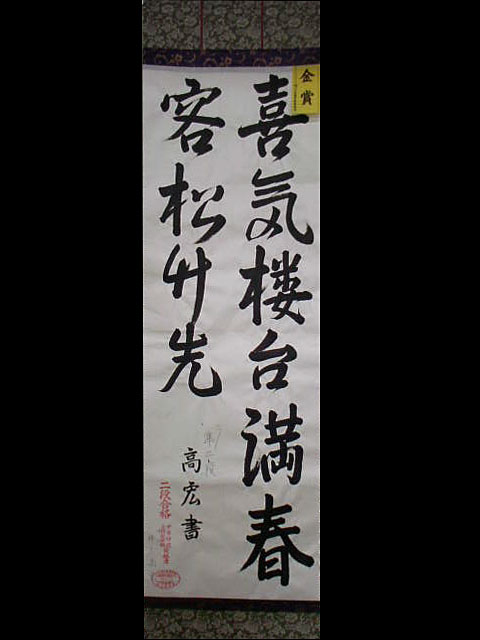 金賞
喜気楼台満春
容松竹先
高宏書
二段合格